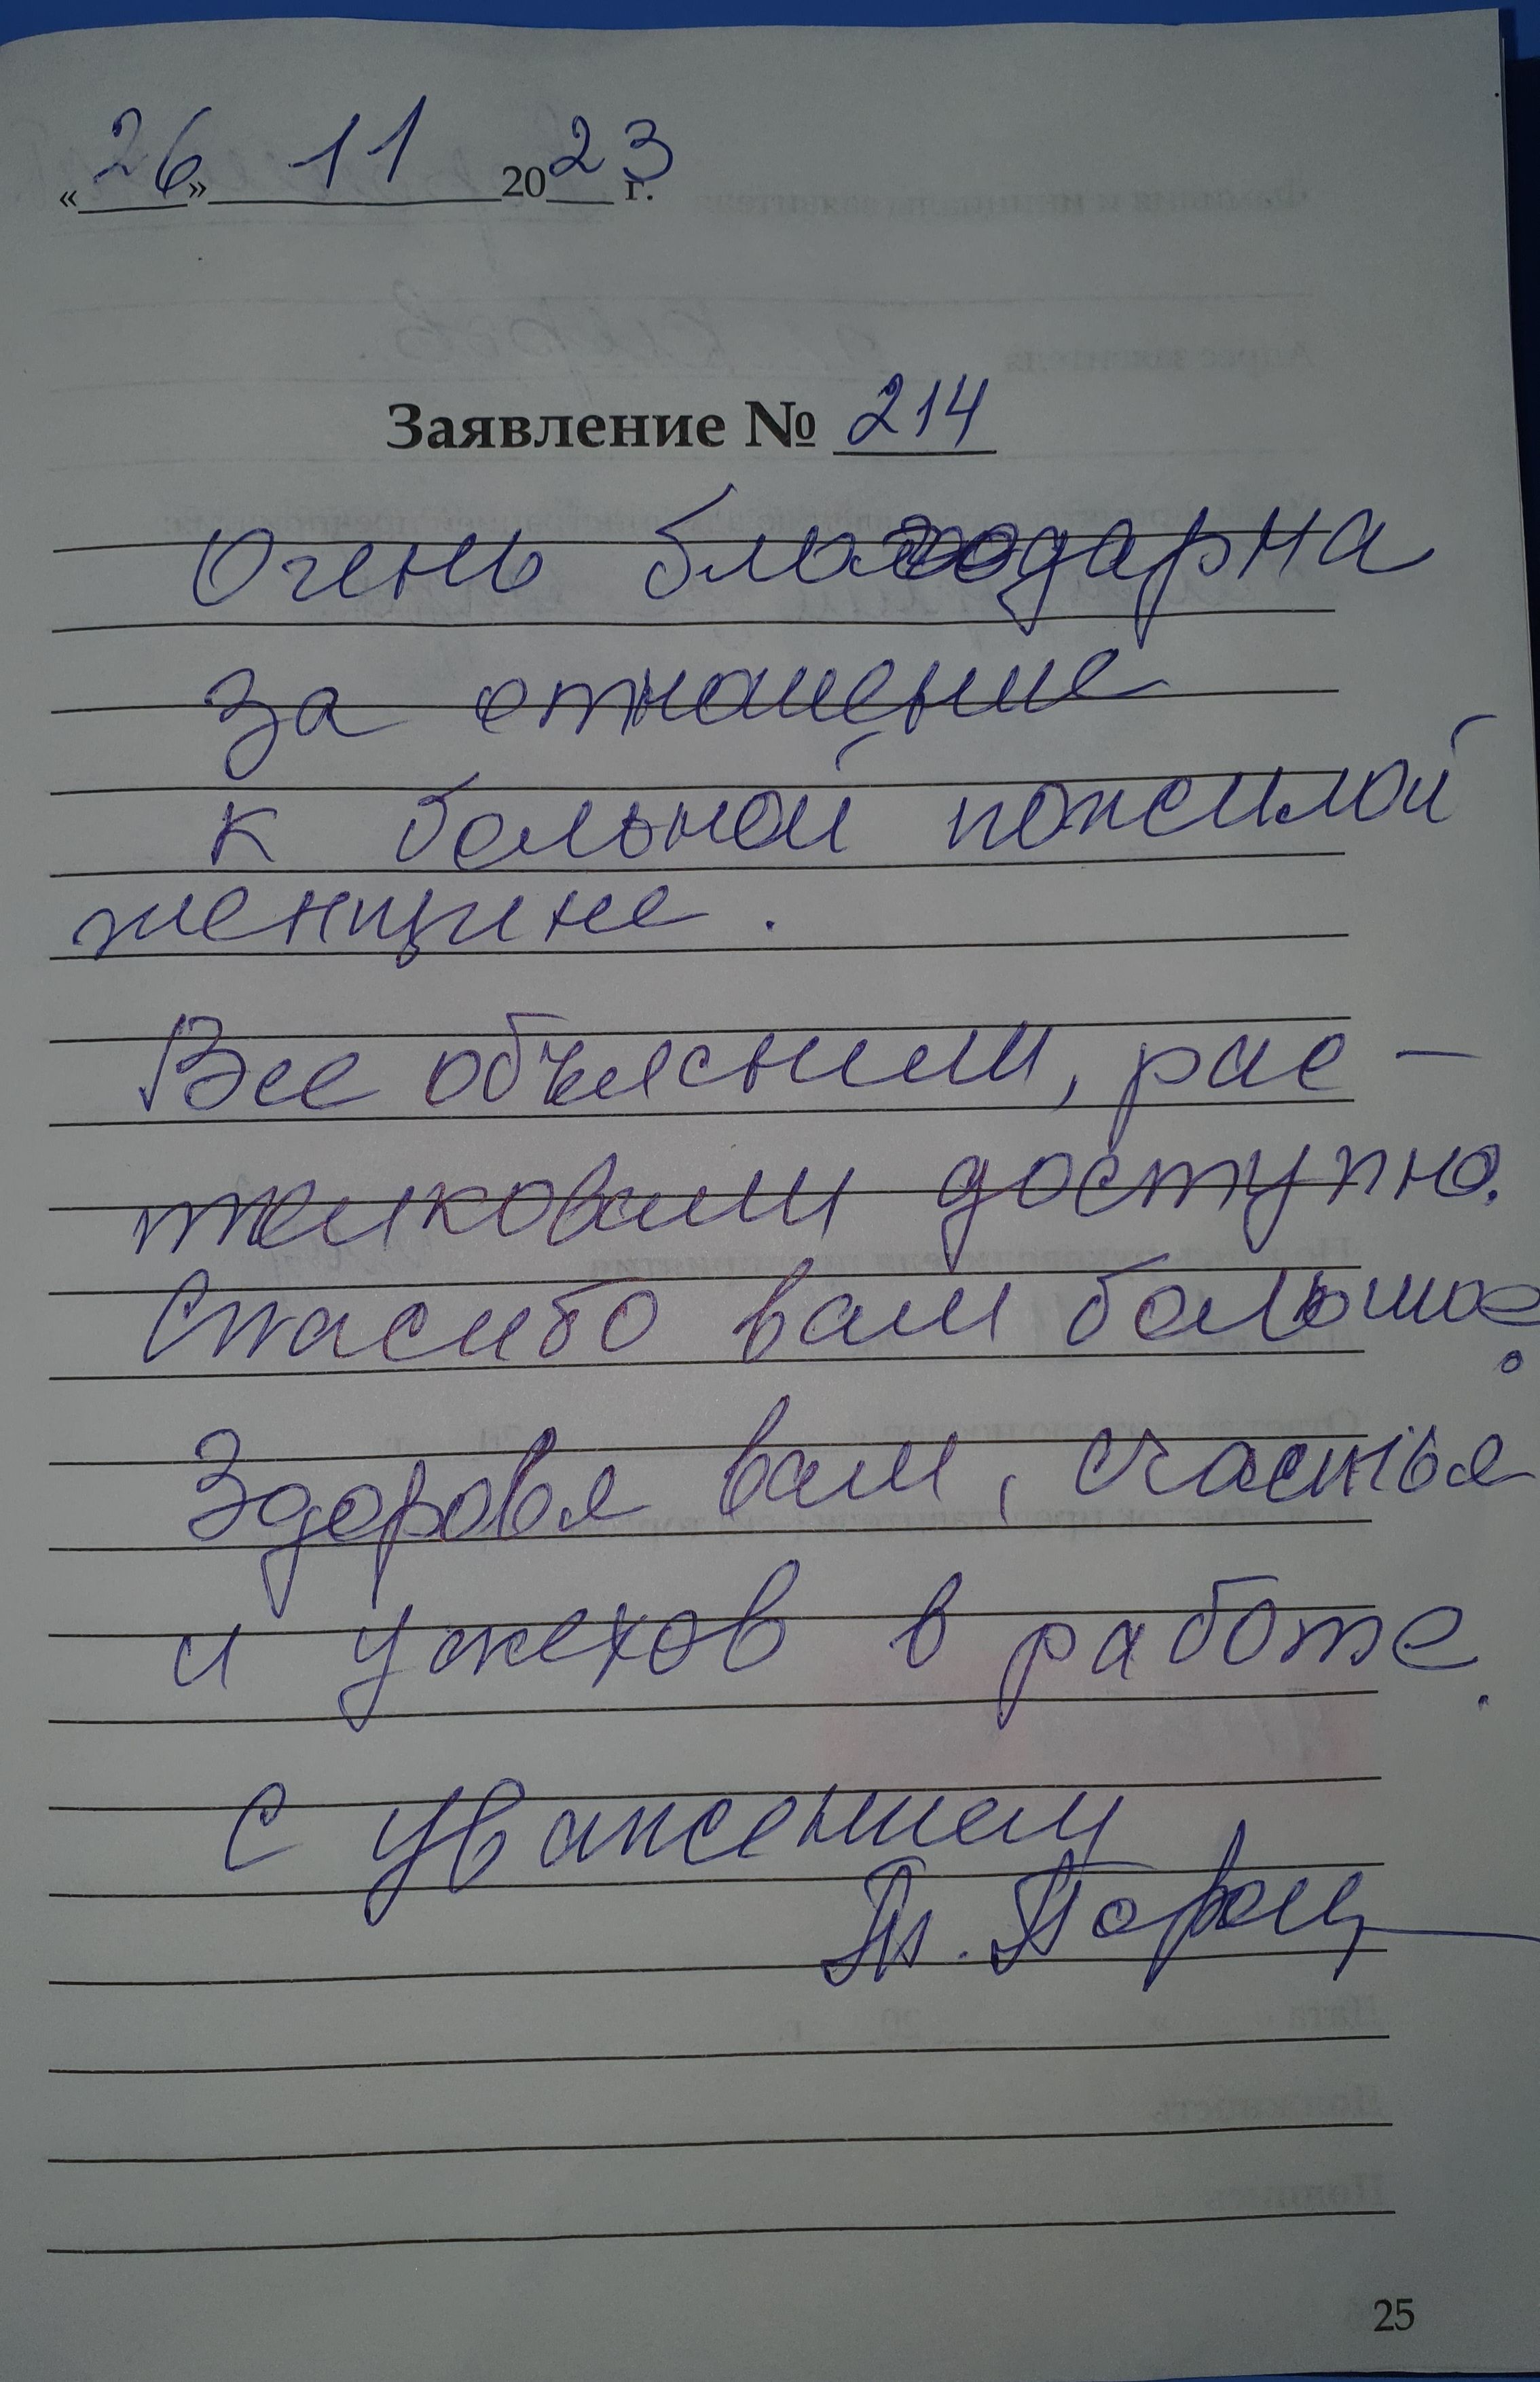 «26» 11 2023 г.
Заявление № 214
Очень благодарна
за отношение
к больной пожилой
женщине.
Все объяснили, рас-
толковали доступно.
Спасибо вам большое.
Здоровья вам, счастья
и успехов в работе.
С уважением
25